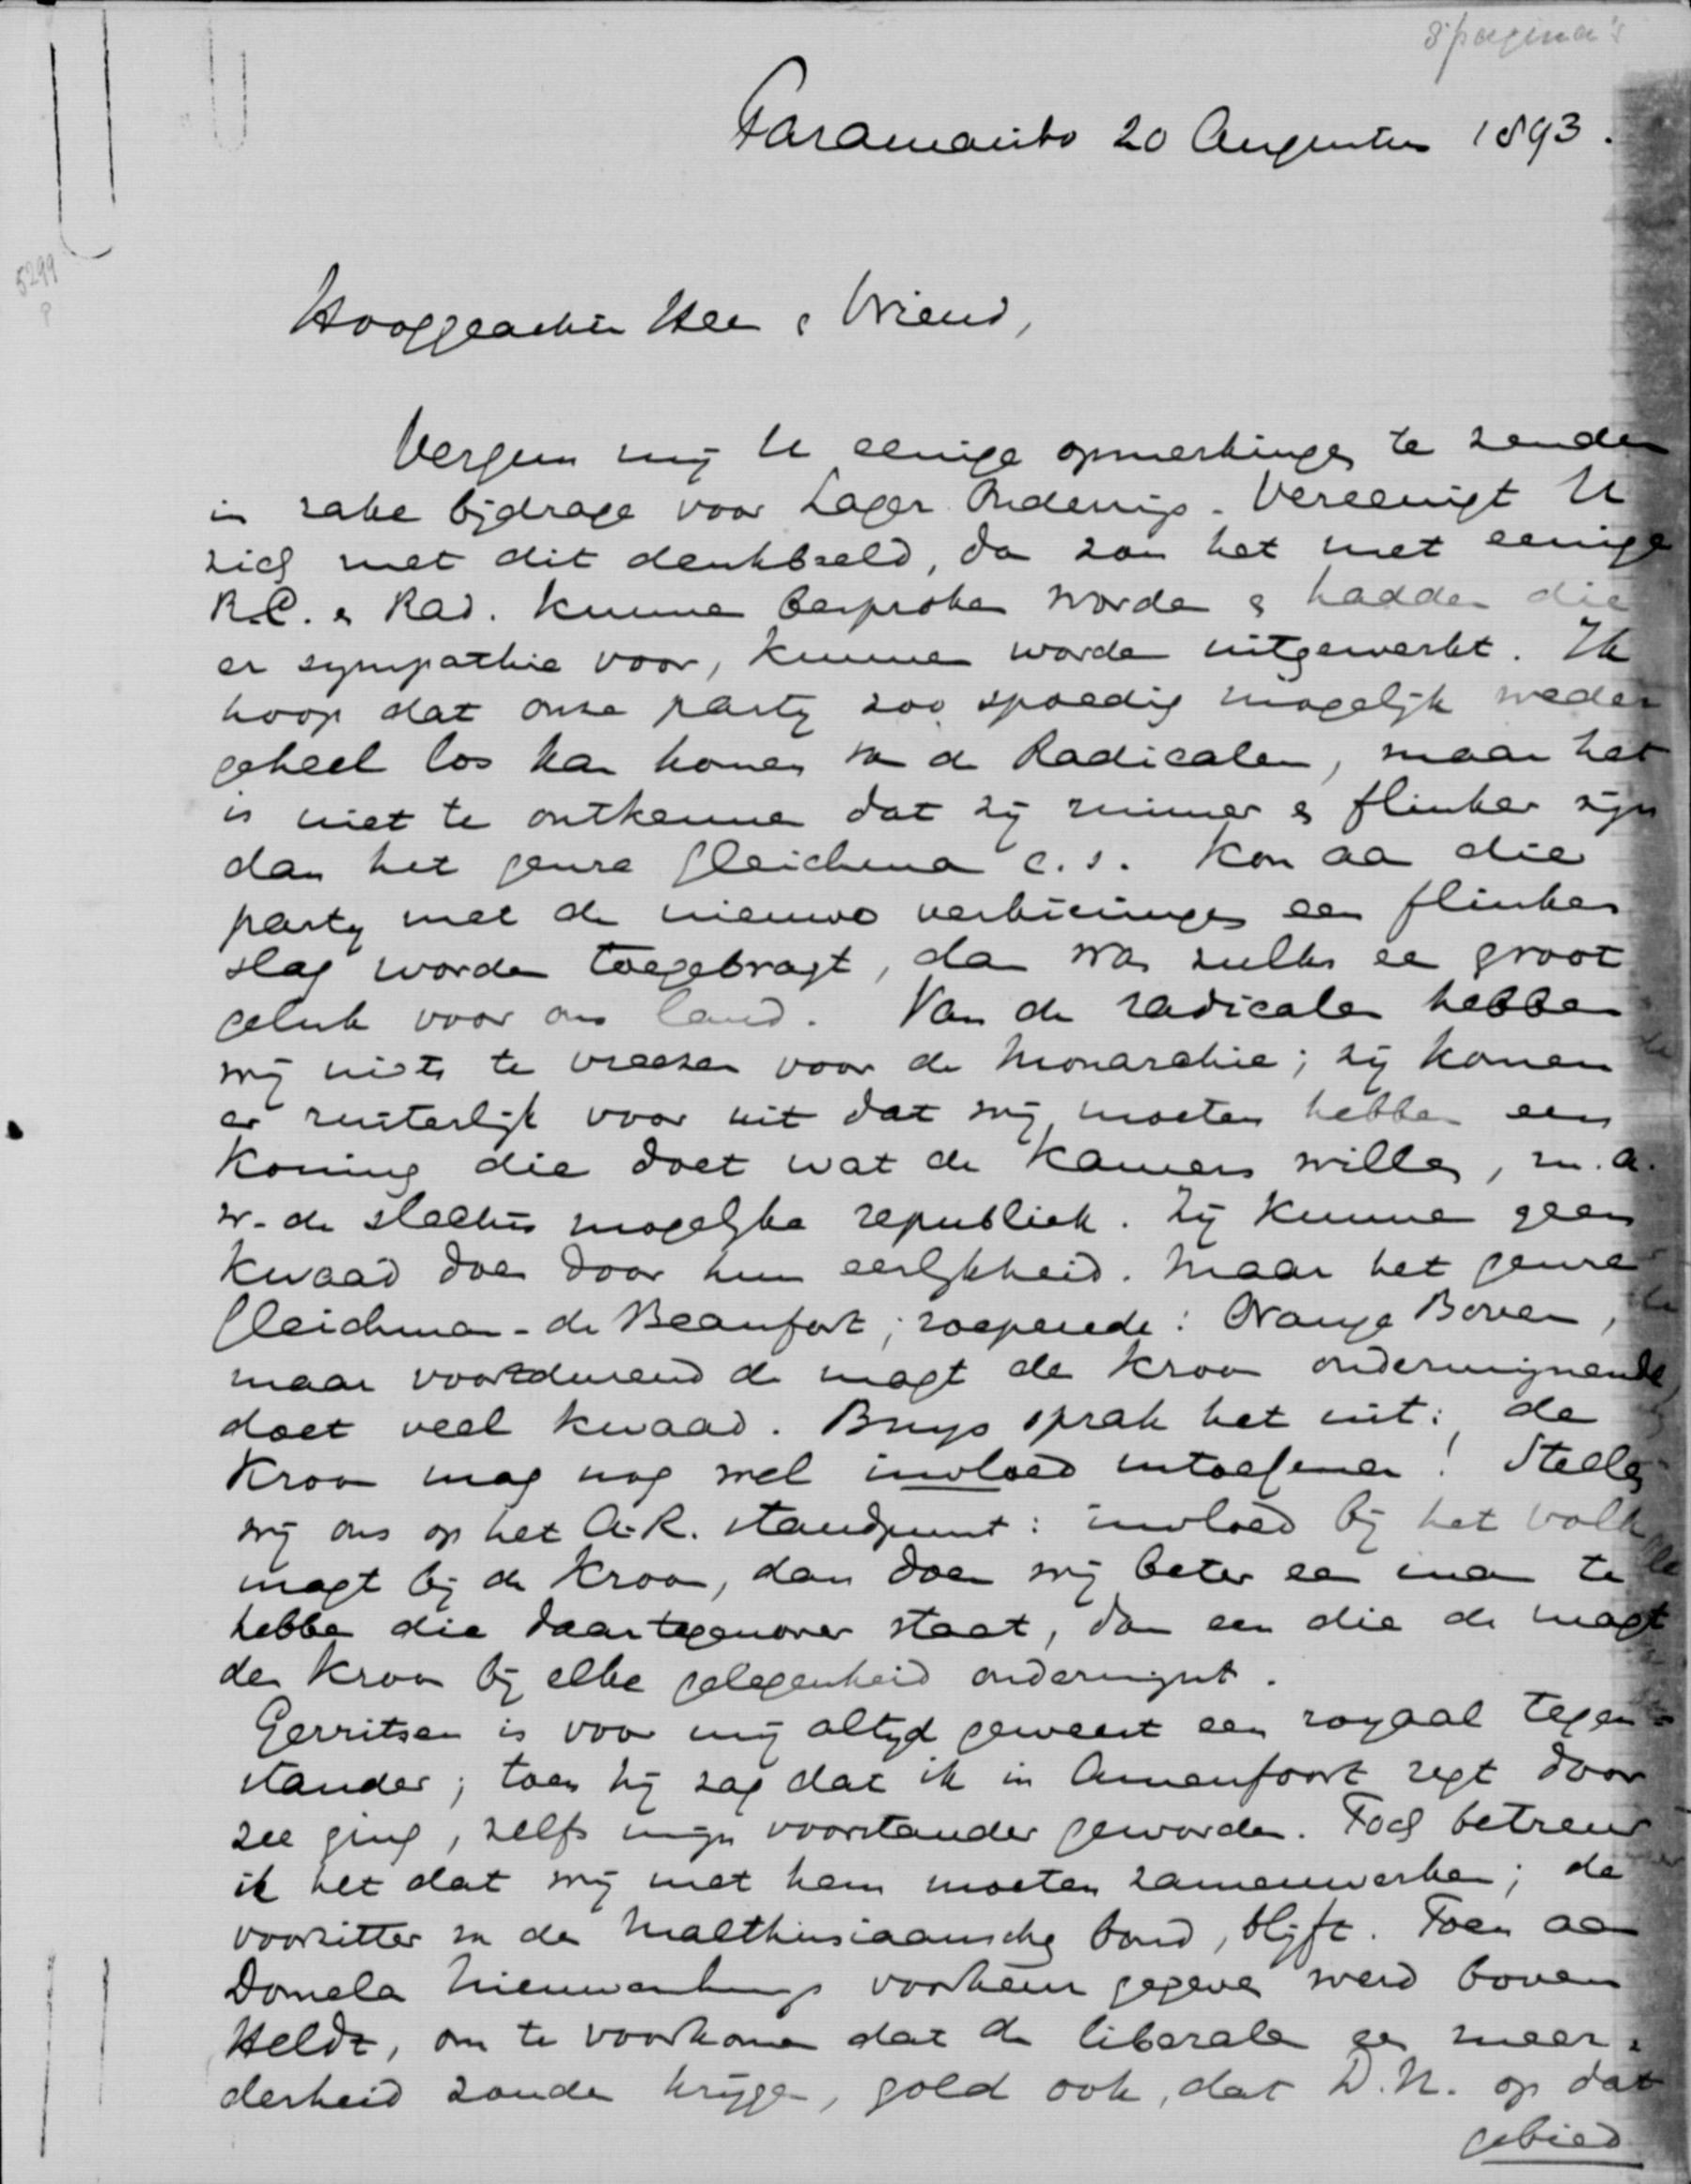 8 pagina's
Paramaribo 20 Augustus 1893.
5299
Hooggeachte Heer & Vriend,
Vergun mij U eenige opmerkingen te zenden
in zake bijdrage voor Lager Onderwijs. Vereenigt U
zich met dit denkbeeld, dan zou het met eenige
R.C. & Rad. kunnen besproken worden & hadden die
er sympathie voor, kunnen worden uitgewerkt. Ik
hoop dat onze party zoo spoedig mogelijk weder
geheel los kan komen van de Radicalen, maar het
is niet te ontkennen dat zij ruimer & flinker zijn
dan het genre Gleichman c.s. Kon aan die
party met de nieuwe verkiezingen een flinken
slag worden toegebragt, dan was zulks een groot
geluk voor ons land. Van de radicalen hebben
wij niets te vreezen voor de Monarchie; zij komen
er ruiterlijk voor uit dat wij moeten hebben een
Koning die doet wat de Kamers willen, m.a.
w. de slechtst mogelijke republiek. Zij kunnen geen
kwaad doen door hun eerlijkheid. Maar het genre
Gleichman - de Beaufort, roepende: Oranje Boven,
maar voortdurend de magt der Kroon ondermijnende,
doet veel kwaad. Buys sprak het uit: de
Kroon mag nog wel invloed uitoefenen! Stellen
wij ons op het A.R. standpunt: invloed bij het volk
magt bij de Kroon, dan doen wij beter een man te
hebben die daartegenover staat, dan een die de magt
der Kroon bij elke gelegenheid ondermijnt.
Gerritsen is voor mij altyd geweest een royaal tegen-
stander; toen hij zag dat ik in Amersfoort regt door
zee ging, zelfs mijn voorstander geworden. Toch betreur
ik het dat wij met hem moeten zamenwerken; de
voorzitter van den Malthusiaanschen bond, blijft. Toen aan
Domela Nieuwenhuys voorkeur gegeven werd boven
Heldt, om te voorkomen dat de liberalen een meer-
derheid zouden krijgen, gold ook, dat D.N. op dat
gebied